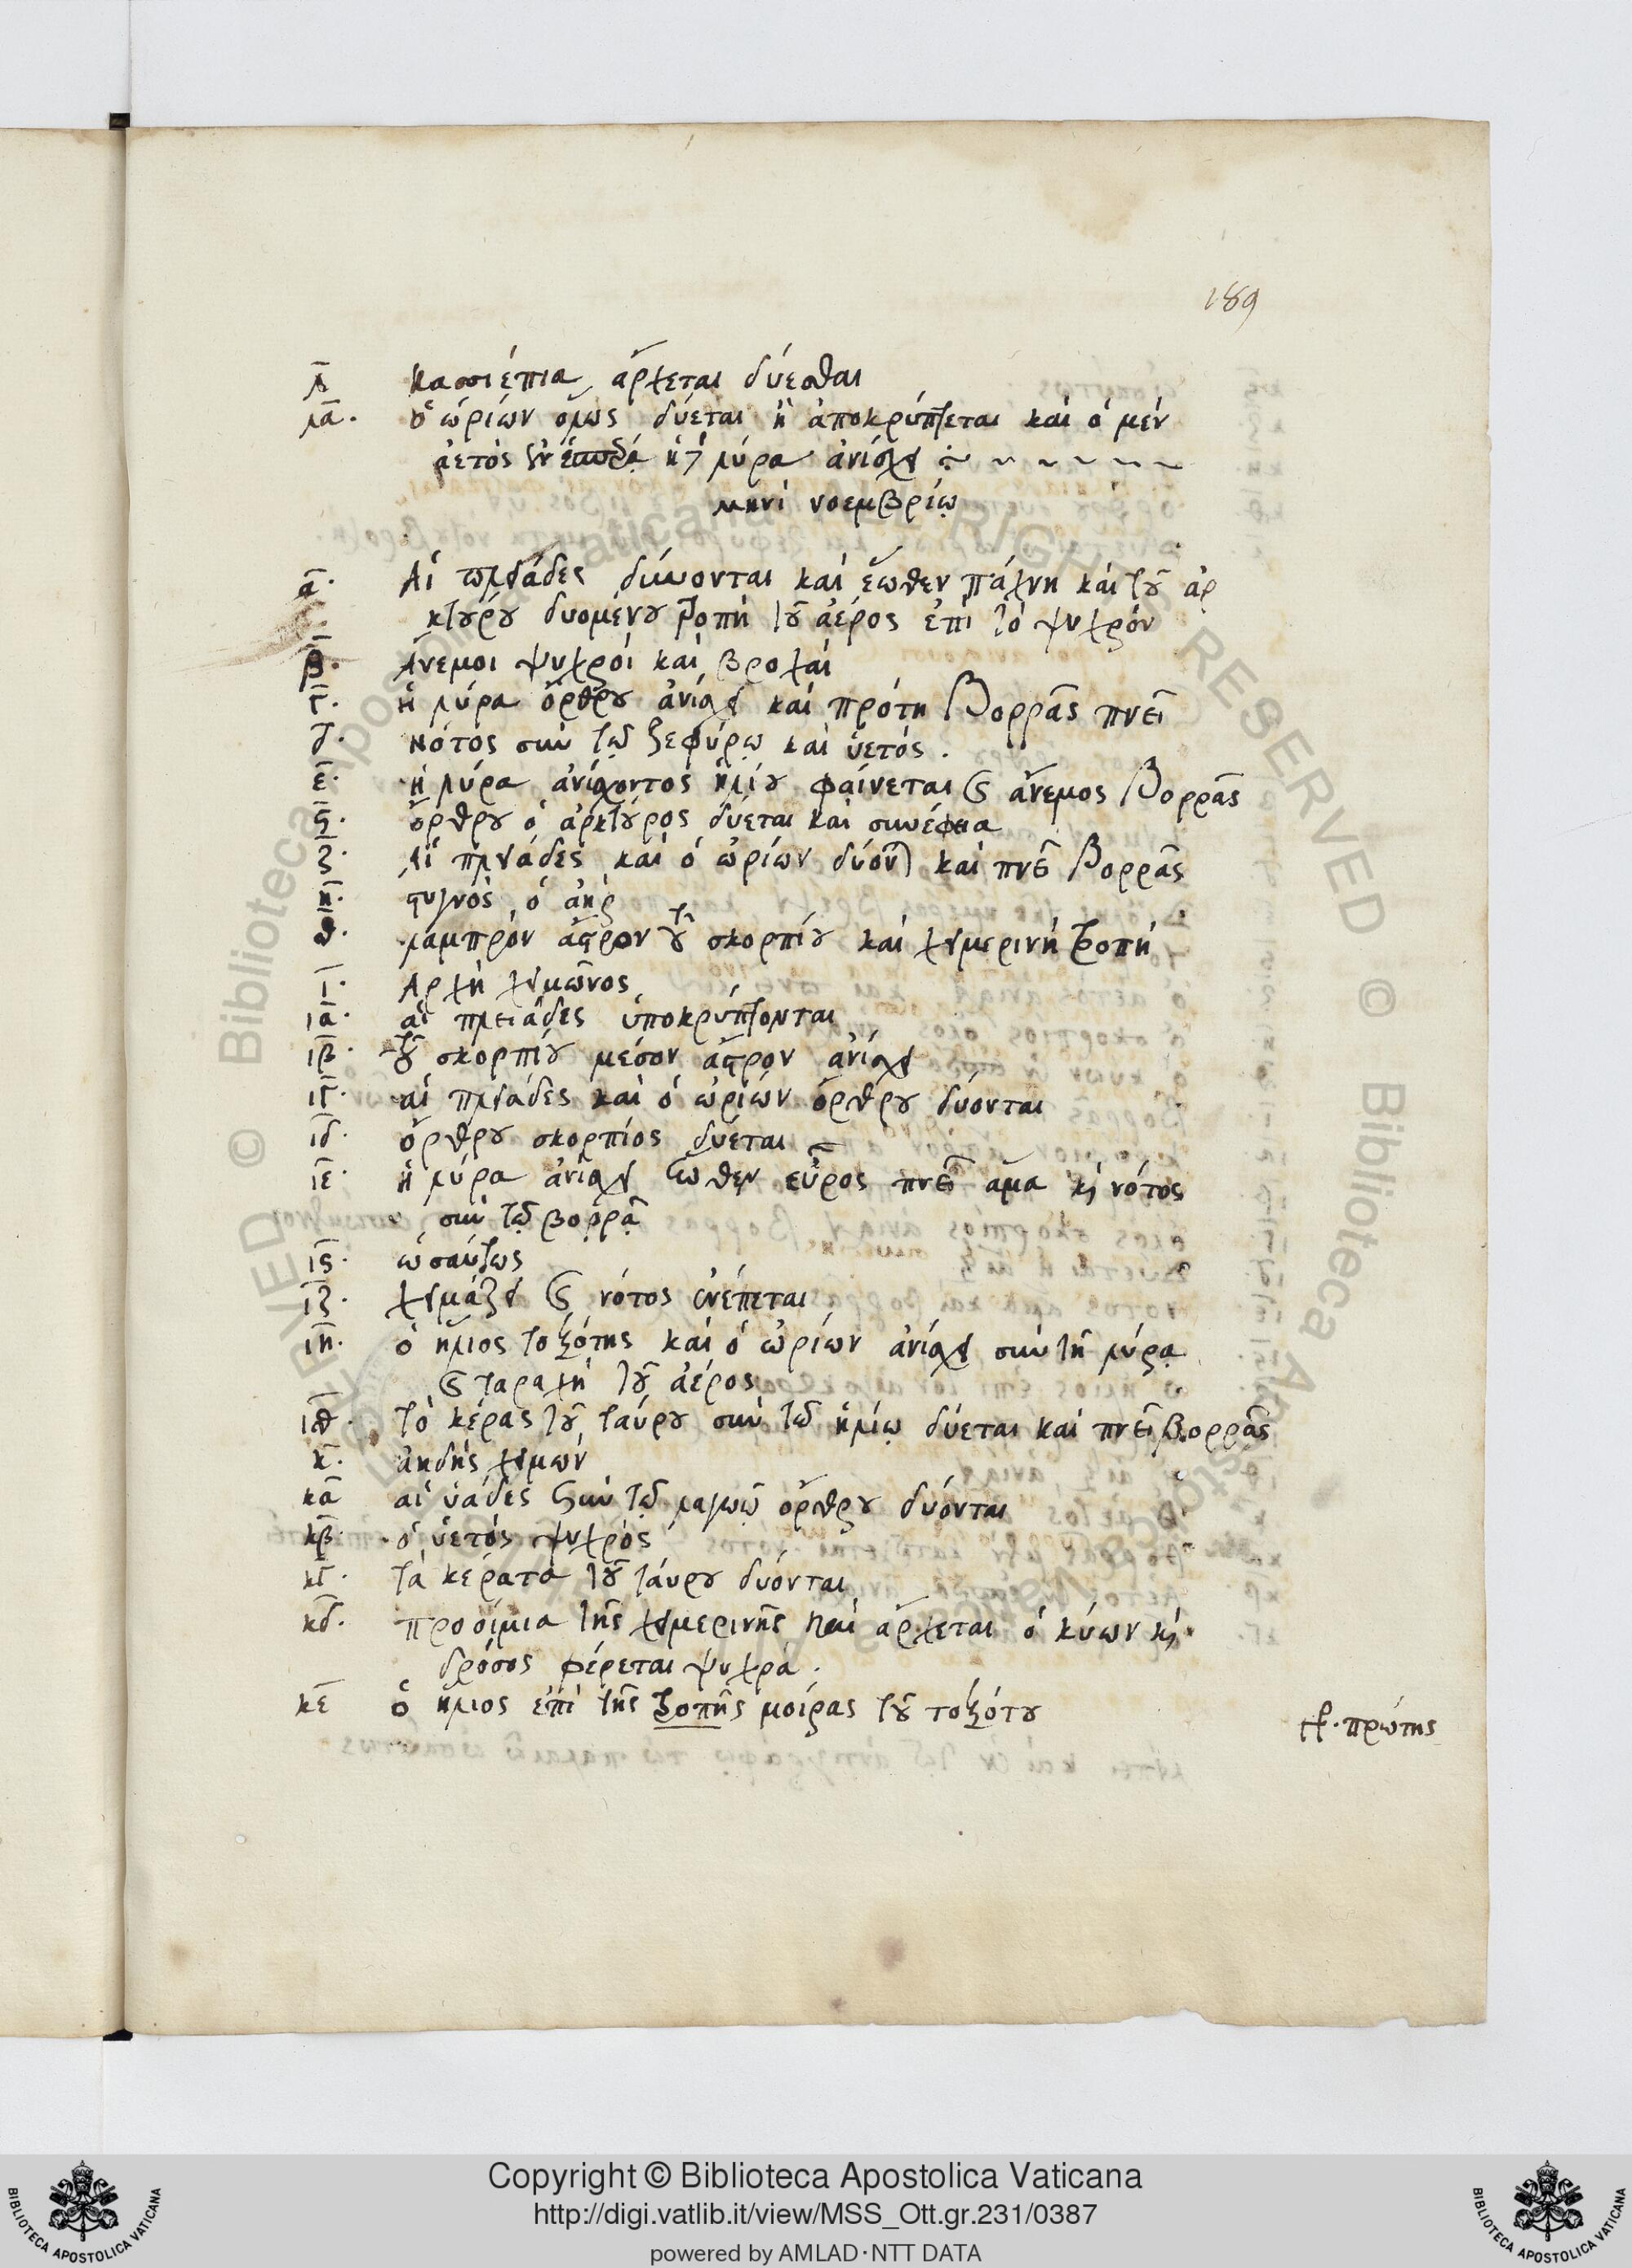 189
λ̅ κασσιέπια ἄρχεται δύεσθαι
λα̅. ὁ ὠρίων ὅλως δύεται ἢ ἀποκρύπτεται καὶ ὁ μὲν
ἀετὸς ἐν ἑσπέρᾳ ἡ λύρα ἀνίσχει
μηνὶ νοεμβρίῳ
α̅. Αἱ πλειάδες δύνονται καὶ ἕωθεν πάχνη καὶ τοῦ ἀρ
κτούρου δυομένου τροπὴ τοῦ ἀέρος ἐπὶ τὸ ψυχρόν
β̅. Ἄνεμοι ψυχροὶ καὶ βροχαί
γ̅. ἡ λύρα ὄρθρου ἀνίσχει καὶ πρότη Βορρᾶς πνεῖ
δ̅. Νότος σὺν τῷ ζεφύρῳ καὶ ὑετός.
ε̅. ἡ λύρα ἀνίσχοντος ἡλίου φαίνεται καὶ ἄνεμος Βορρᾶς
ς̅. ὄρθρου ὁ ἀρκτοῦρος δύεται καὶ συνέφεια
ζ̅. Αἱ πλειάδες καὶ ὁ ὠρίων δύονται καὶ πνεῖ Βορρᾶς
η̅. στυγνὸς ὁ ἀὴρ
θ̅. λαμπρὸν ἄστρον τοῦ σκορπίου καὶ χειμερινὴ τροπή
ι̅. Ἀρχὴ χειμῶνος
ια̅. αἱ πλειάδες ὑποκρύπτονται
ιβ̅. τοῦ σκορπίου μέσον ἄστρον ἀνίσχει
ιγ̅. αἱ πλειάδες καὶ ὁ ὠρίων ὄρθρου δύονται
ιδ̅. ὄρθρου σκορπίος δύεται
ιε̅. ἡ λύρα ἀνίσχει ἕωθεν εὖρος πνεῖ ἅμα καὶ νότος
σὺν τῷ βορρᾷ
ις̅. ὡσαύτως
ιζ̅. χειμάζει καὶ νότος ἐνέπεται
ιη̅. ὁ ἥλιος τοξότης καὶ ὁ ὠρίων ἀνίσχει σὺν τῇ λύρᾳ
καὶ ταραχὴ τοῦ ἀέρος
ιθ̅. τὸ κέρας τοῦ ταύρου σὺν τῷ ἡλίῳ δύεται καὶ πνεῖ βορρᾶς
κ̅. ἀηδὴς χειμών
κα̅ αἱ ὑάδες σὺν τῷ λαγωῷ ὄρθρου δύονται
κβ̅. ὁ ὑετὸς ψυχρός
κγ̅. τὰ κέρατα τοῦ ταύρου δύονται
κδ̅. προοίμια τῆς χειμερινῆς καὶ ἄρχεται ὁ κύων καὶ
δρόσος φέρεται ψυχρά.
κε̅ ὁ ἥλιος ἐπὶ τῆς τροπῆς μοίρας τοῦ τοξότου
γρ. πρώτης
Copyright © Biblioteca Apostolica Vaticana
http://digi.vatlib.it/view/MSS_Ott.gr.231/0387
powered by AMLAD·NTT DATA